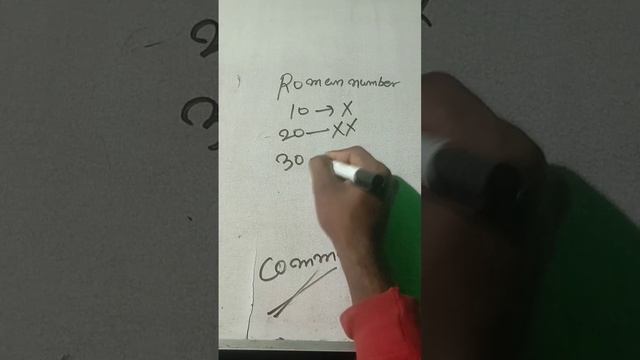 Roman number
10 → X
20 — XX
30
Comm